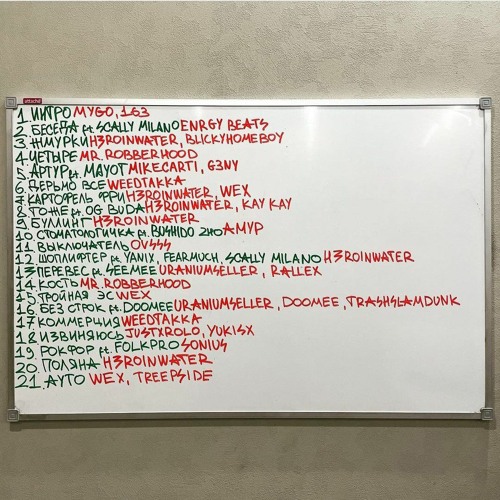 attache
1. ИНТРО MYGO, 163
2. БЕСЕДА ft. SCALLY MILANO ENRGY BEATS
3. ЖМУРКИ H3ROINWATER, BLICKYHOMEBOY
4. ЧЕТЫРЕ MR. ROBBERHOOD
5. АРТУР ft. MAYOT MIKECARTI, G3NY
6. ДЕРЬМО ВСЕ WEEDTAKKA
7. КАРТОФЕЛЬ ФРИ H3ROINWATER, WEX
8. ТОЖЕ ft. OG BUDA H3ROINWATER, KAY KAY
9. БУЛЛИНГ H3ROINWATER
10. СТОМАТОЛОГИЧКА ft. BUSHIDO ZHO АМУР
11. ВЫКЛЮЧАТЕЛЬ OVSSS
12. ШОПЛИФТЕР ft. YANIX, FEARMUCH, SCALLY MILANO H3ROINWATER
13. ПЕРЕВЕС ft. SEEMEE URANIUMSELLER, RALLEX
14. КОСТЬ MR. ROBBERHOOD
15. ТРОЙНАЯ ЭС WEX
16. БЕЗ СТРОК ft. DOOMEE URANIUMSELLER, DOOMEE, TRASHSLAMDUNK
17. КОММЕРЦИЯ WEEDTAKKA
18. ИЗВИНЯЮСЬ JUSTXROLO, YUKISX
19. РОКФОР ft. FOLKPRO SONIUS
20. ПОЛЯНА H3ROINWATER
21. АУТО WEX, TREEPSIDE